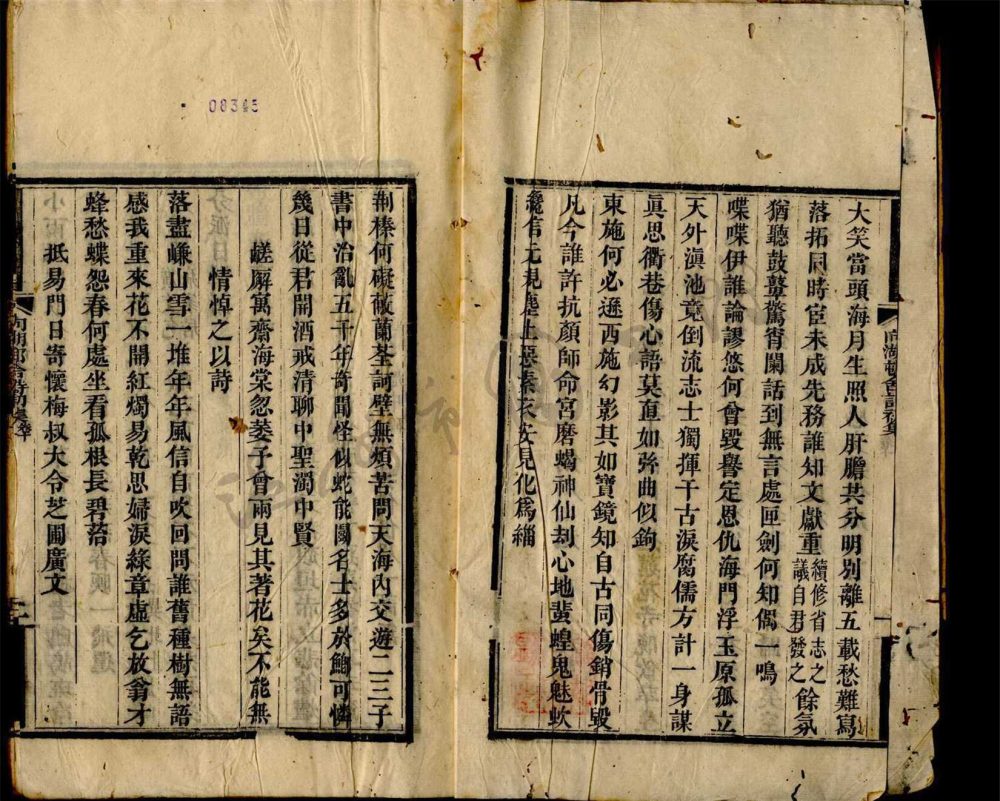 大笑當頭海月生照人肝膽共分明別離五載愁難寫
落拓同時宦未成先務誰知文獻重續修省志之議自君發之餘氛
猶聽鼓鼙驚宵闌話到無言處匣劍何知偶一鳴
喋喋伊誰論謬悠何曾毀譽定恩仇海門浮玉原孤立
天外滇池竟倒流志士獨揮千古淚腐儒方計一身謀
眞思衢巷傷心語莫直如弦曲似鉤
東施何必遜西施幻影其如寶鏡知自古同傷銷骨毀
凡今誰許抗顏師命宮磨蝎神仙刦心地蜚蝗鬼魅蚿
纔信元規塵上惡素衣安見化爲緇
荆榛何礙蔽蘭荃訶壁無煩苦問天海內交遊二三子
書中治亂五千年奇聞怪似蛇能鬭名士多於鯽可憐
幾日從君開酒戒清聊中聖濁中賢
嵯廨寓齋海棠忽萎予曾兩見其著花矣不能無
情悼之以詩
落盡嵰山雪一堆年年風信自吹回問誰舊種樹無語
感我重來花不開紅燭易乾思婦淚綠章虛乞放翁才
蜂愁蝶怨春何處坐看孤根長碧苔
抵易門日寄懷梅叔大令芝圃廣文
08345